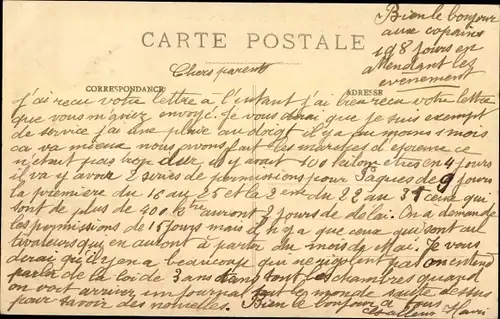 Bien le bonjour
aux copains
198 jours en
attendant les
évènement
CARTE POSTALE
Chers parents
CORRESPONDANCE
ADRESSE
j'ai recu votre lettre a l'instant j'ai bien recu votre lettre
que vous m'aviez envoyé. Je vous dirai que je suis exempt
de service j'ai une plaie au doigt il y a au moins 1 mois
ca va mieux nous avons fait les marches d'épreuve ce
n'était pas trop dur il y avait 100 kilomètres en 4 jours
il va y avoir 2 series de permissions pour Pâques de 9 jours
la première du 16 au 25 et la 2eme du 22 au 31 ceux qui
sont de plus de 400 auront 2 jours de delai. On a demandé
les permissions de 15 jours mais il n'y a que ceux qui sont
cultivateurs qui en auront à partir du mois de Mai. Je vous
dirai qu'il y en a beaucoup qui ne rigolent pas on entend
parler de la loi de 3 ans dans tout les chambres quand
on voit arriver un journal tout le monde saute dessus
pour savoir des nouvelles. Bien le bonjour à tous